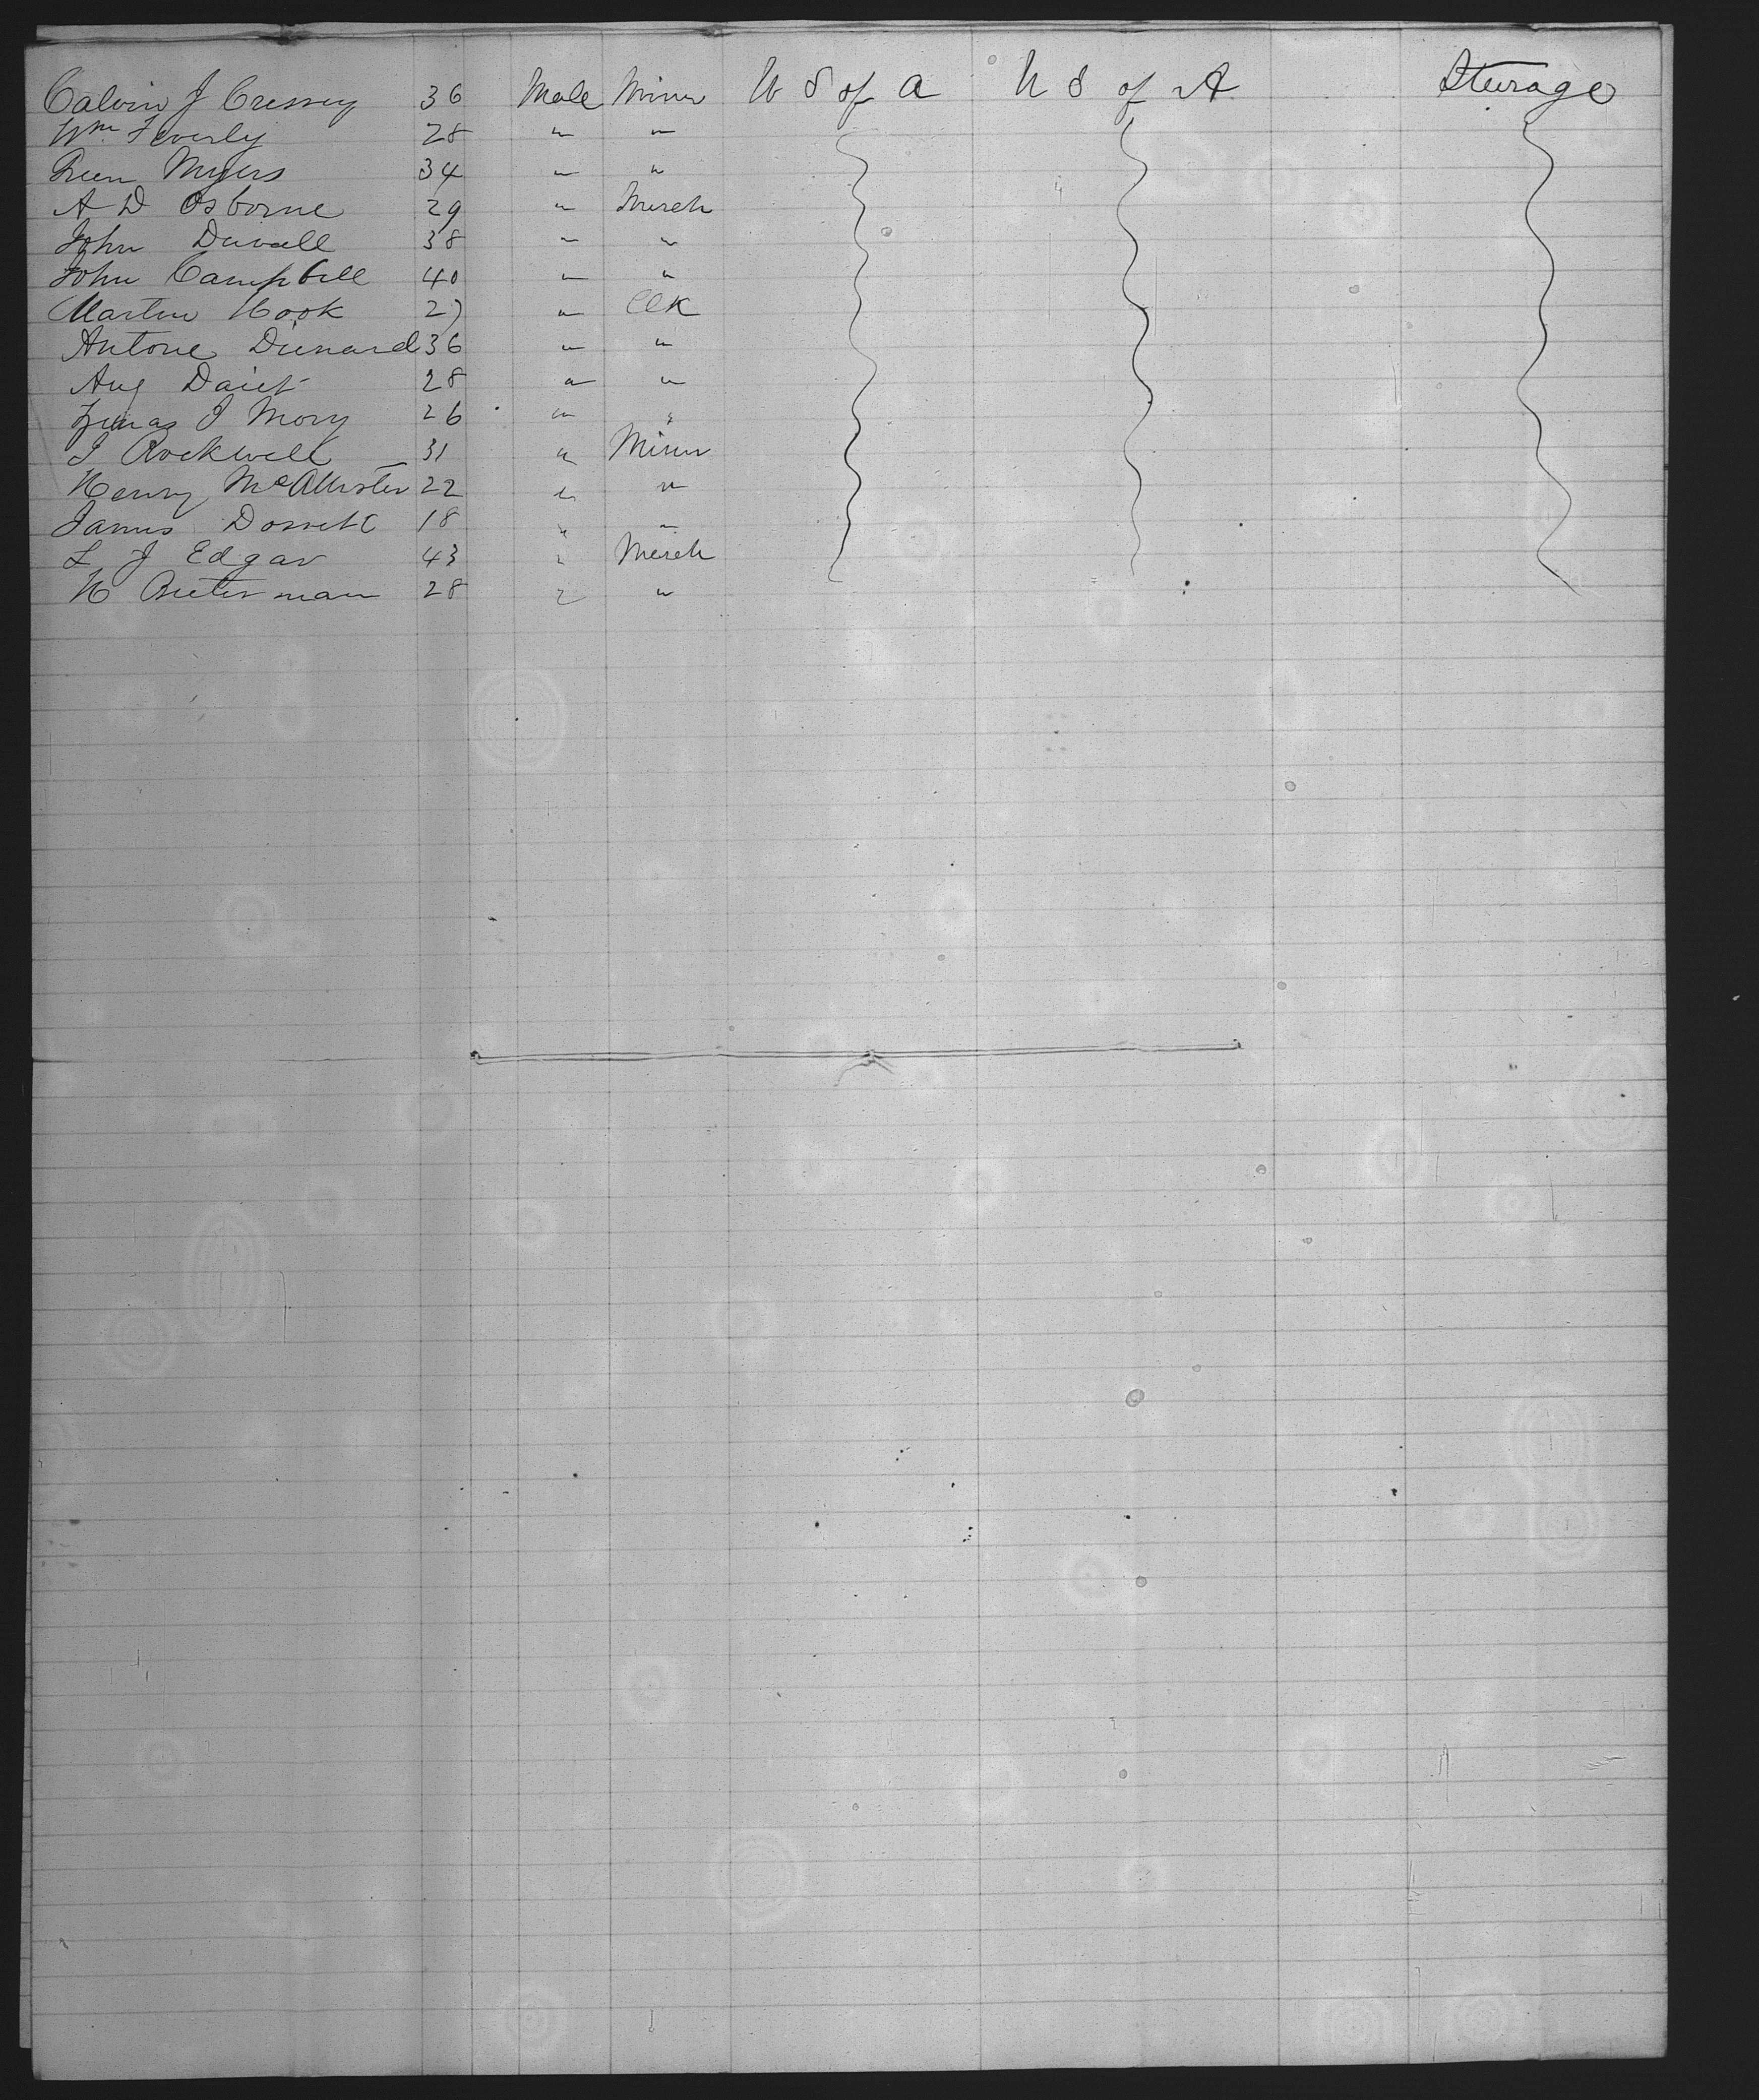 Calvin J Cressey 36 Male Miner U S of A U S of A Steerage
Wm Feverly 28 " "
Green Myers 34 " "
A D Osborne 29 " Merch
John Duvall 38 " "
John Campbell 40 " "
Martin Hook 27 " Clk
Antone Dunard 36 " "
Aug 28 " "
J Mory 26 " "
J Rockwell 31 " Miner
Henry McAllister 22 " "
James Dorsett 18 " "
L J Edgar 43 " Merch
H 28 " "